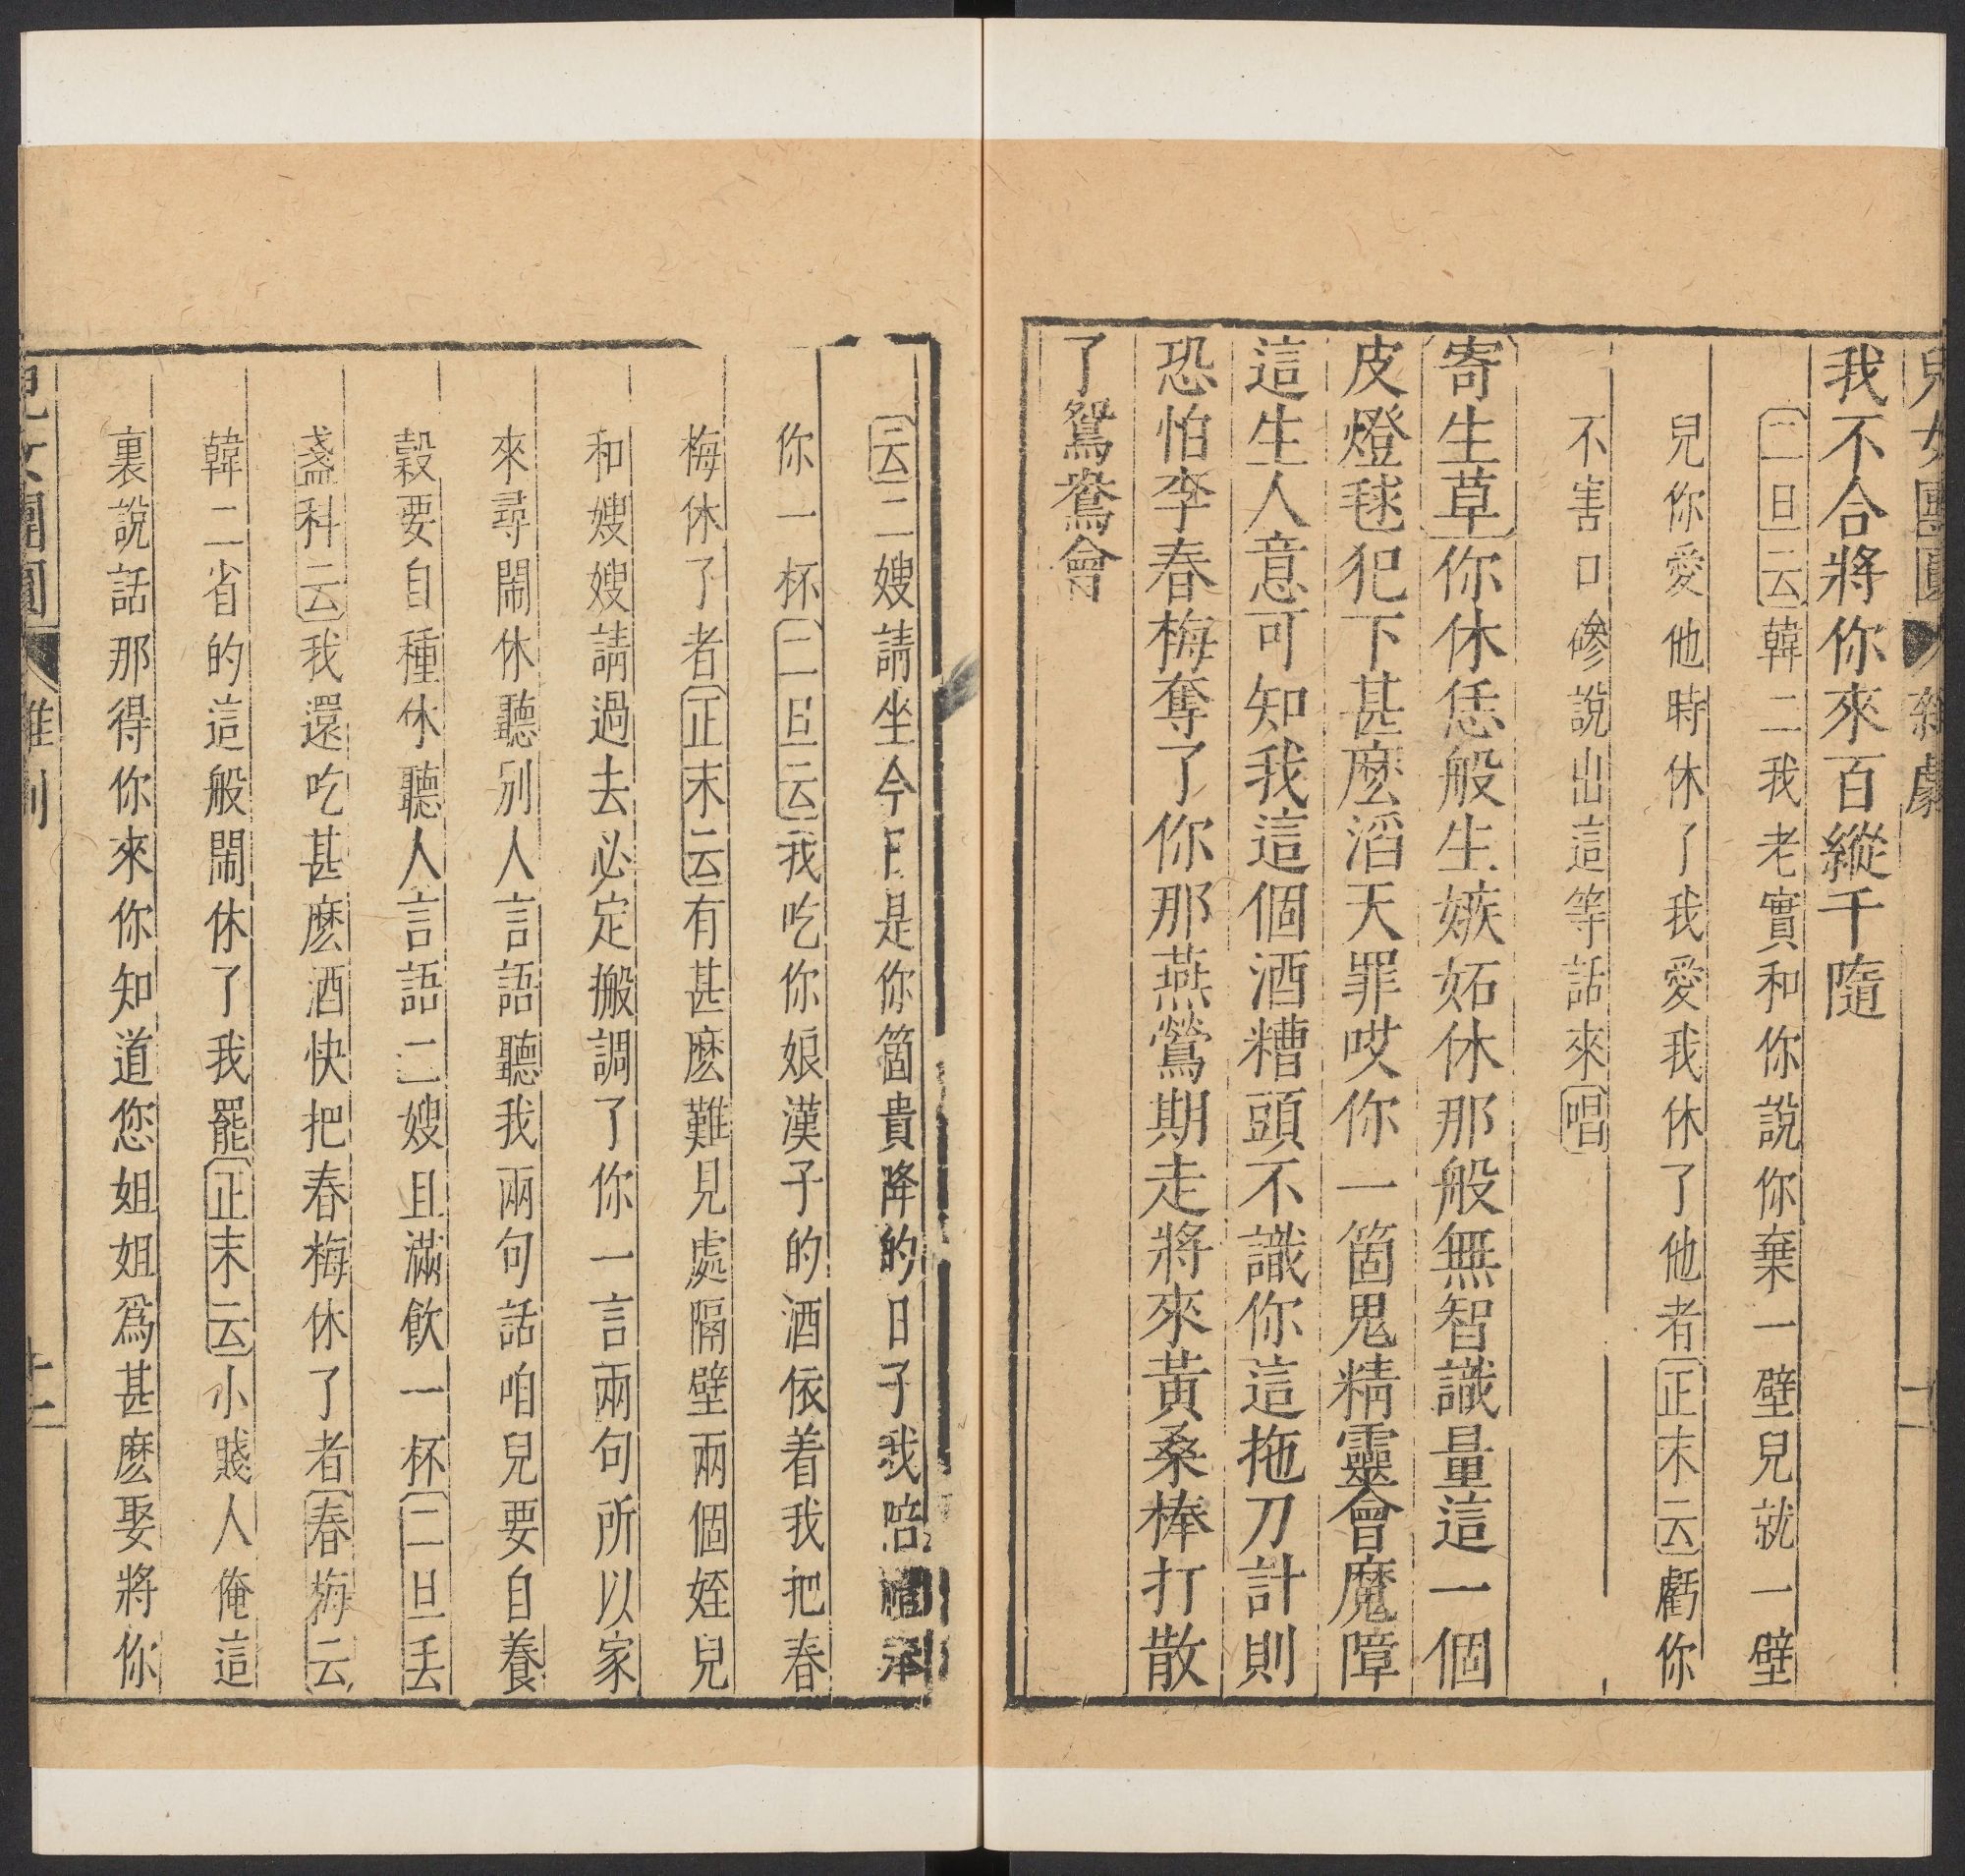 兒女團圓 雜劇
我不合將你來百縱千隨
〔二旦云〕韓二我老實和你說你棄一壁兒就一壁
兒你愛他時休了我愛我休了他者〔正末云〕虧你
不害口磣說出這等話來〔唱〕
〔寄生草〕你休恁般生嫉妬休那般無智識量這一個
皮燈毬犯下甚麽滔天罪哎你一箇鬼精靈會魔障
這生人意可知我這個酒糟頭不識你這拖刀計則
恐怕李春梅奪了你那燕鶯期走將來黃桑棒打散
了鴛鴦會
〔云〕二嫂請坐今日是你箇貴降的日子我陪
你一杯〔二旦云〕我吃你娘漢子的酒依着我把春
梅休了者〔正末云〕有甚麽難見處隔壁兩個姪兒
和嫂嫂請過去必定搬調了你一言兩句所以家
來尋鬧休聽別人言語聽我兩句話咱兒要自養
穀要自種休聽人言語二嫂且滿飮一杯〔二旦丢
盞科云〕我還吃甚麽酒快把春梅休了者〔春梅云〕
韓二省的這般鬧休了我罷〔正末云〕小賤人俺這
裏說話那得你來你知道您姐姐爲甚麽娶將你
兒女團圓 雜劇